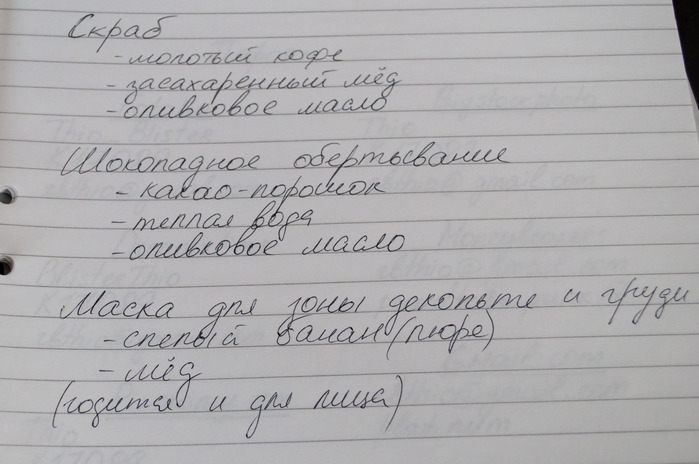 Скраб
- молотый кофе
- засахаренный мёд
- оливковое масло
Шоколадное обертывание
- какао-порошок
- теплая вода
- оливковое масло
Маска для зоны декольте и груди
- спелый банан (пюре)
- мёд
(годится и для лица)